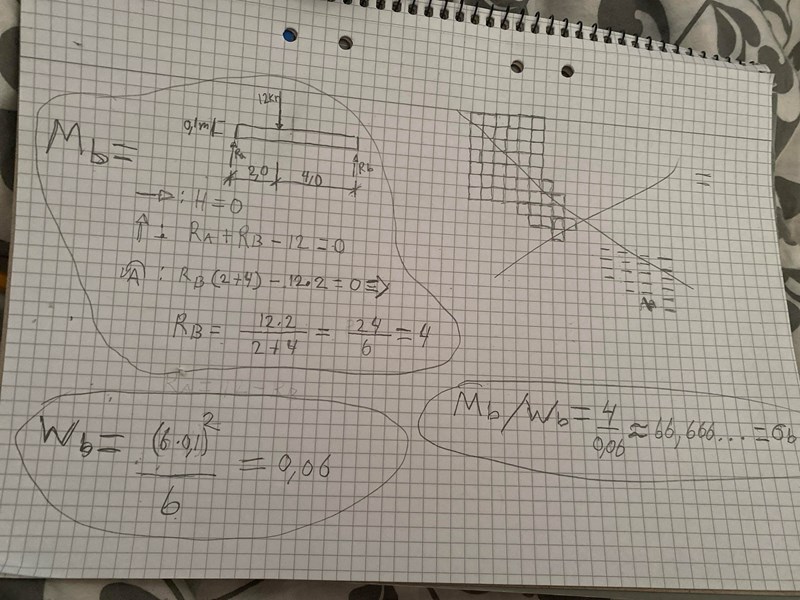 12kN
0,1m
M_b =
R_A
R_b
2,0 4,0
→ : H = 0
↑ : R_A + R_B - 12 = 0
A : R_B (2+4) - 12·2 = 0 ⇒
R_B = 12·2 / 2+4 = 24 / 6 = 4
W_b = (6·0,1)² / 6 = 0,06
M_b / W_b = 4 / 0,06 ≈ 66,666... = σ_b
=